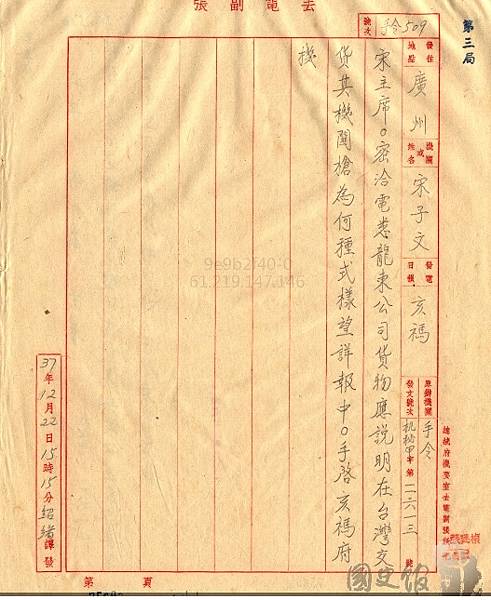 去電副張
第三局
號次 手令509
發往地點 廣州
機關或姓名 宋子文
發電日報 亥禡
原辦機關 手令
發文號次 机秘甲字第二六一三號
宋主席。密洽電悉龍東公司貨物應說明在台灣交
貨其機關槍為何種式樣望詳報中。手啓亥禡府
機
37年12月22日15時15分紹緒譯發
第 頁
國史館
9e9b2f40:0
61.219.147.146